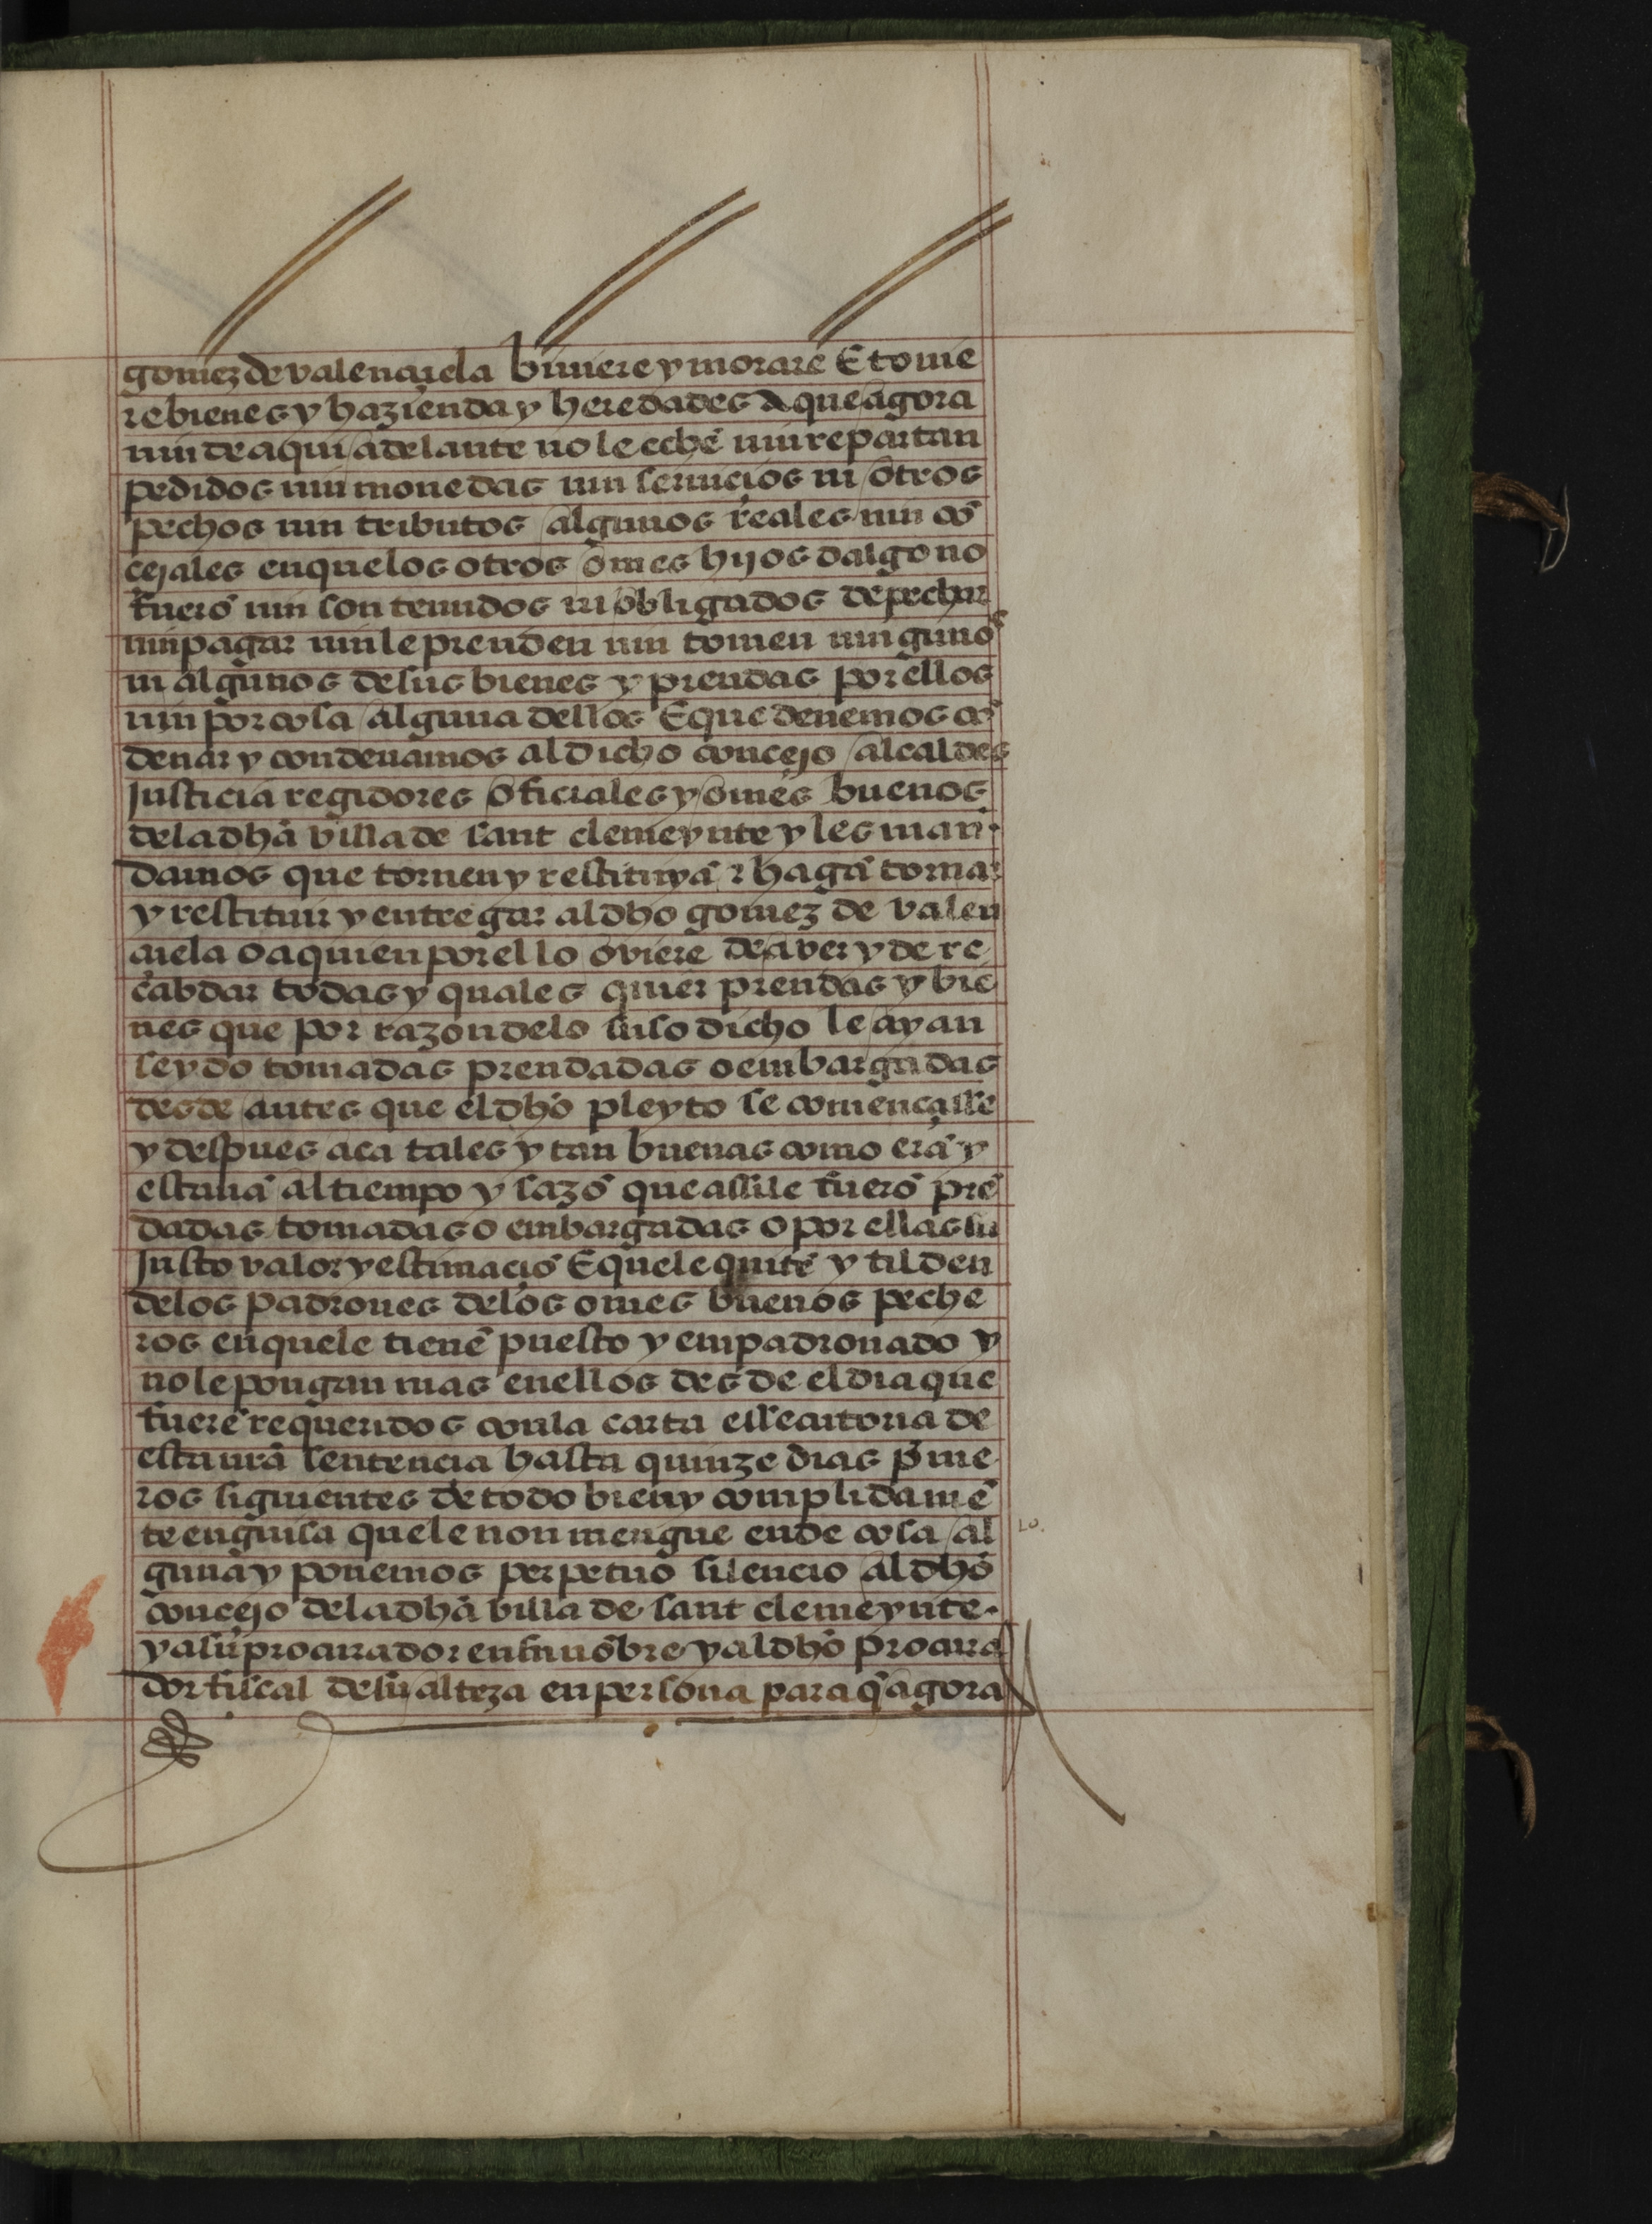 gomez de valençuela biuiere y morare E touie
re bienes y hazienda y heredades A que agora
nin de aqui adelante no le echē nin repartan
pedidos nin monedas nin seruiçios ni otros
pechos nin tributos algunos reales nin cō
cejales en que los otros omes hijos dalgo no
fuerō nin son tenudos ni obligados de pechar
nin pagar nin le prenden nin tomen ningunos
ni algunos de sus bienes y prendas por ellos
nin por cosa alguna dellos E que deuemos cō
denar y condenamos al dicho concejo alcaldes
justicia regidores oficiales y omes buenos
de la dhā villa de sant clemeynte y les man
damos que tornen y restituyā ⁊ hagā tornar
y restituir y entregar al dho gomez de valen
çuela o a quien por ello oviere de aver y de re
cabdar todas y quales quier prendas y bie
nes que por razon de lo suso dicho le ayan
seydo tomadas prendadas o embargadas
desde antes que el dhō pleyto se començasse
y despues aca tales y tan buenas como erā y
estauā al tiempo y sazō que assi le fuerō prē
dadas tomadas o embargadas o por ellas su
justo valor y estimaciō E que le quitē y tilden
de los padrones de los omes buenos peche
ros en que le tienē puesto y empadronado y
no le pongan mas en ellos desde el dia que
fuerē requeridos con la carta essecutoria de
esta nrā sentencia hasta quinze dias p̄me
ros siguientes de todo bien y complidamē
te en guisa que le non mengue ende cosa al
guna y ponemos perpetuo silencio al dhō
concejo de la dhā villa de sant clemeynte.
y a su procurador en su nōbre y al dhō procura
dor fiscal de su alteza en persona para q̄ agora